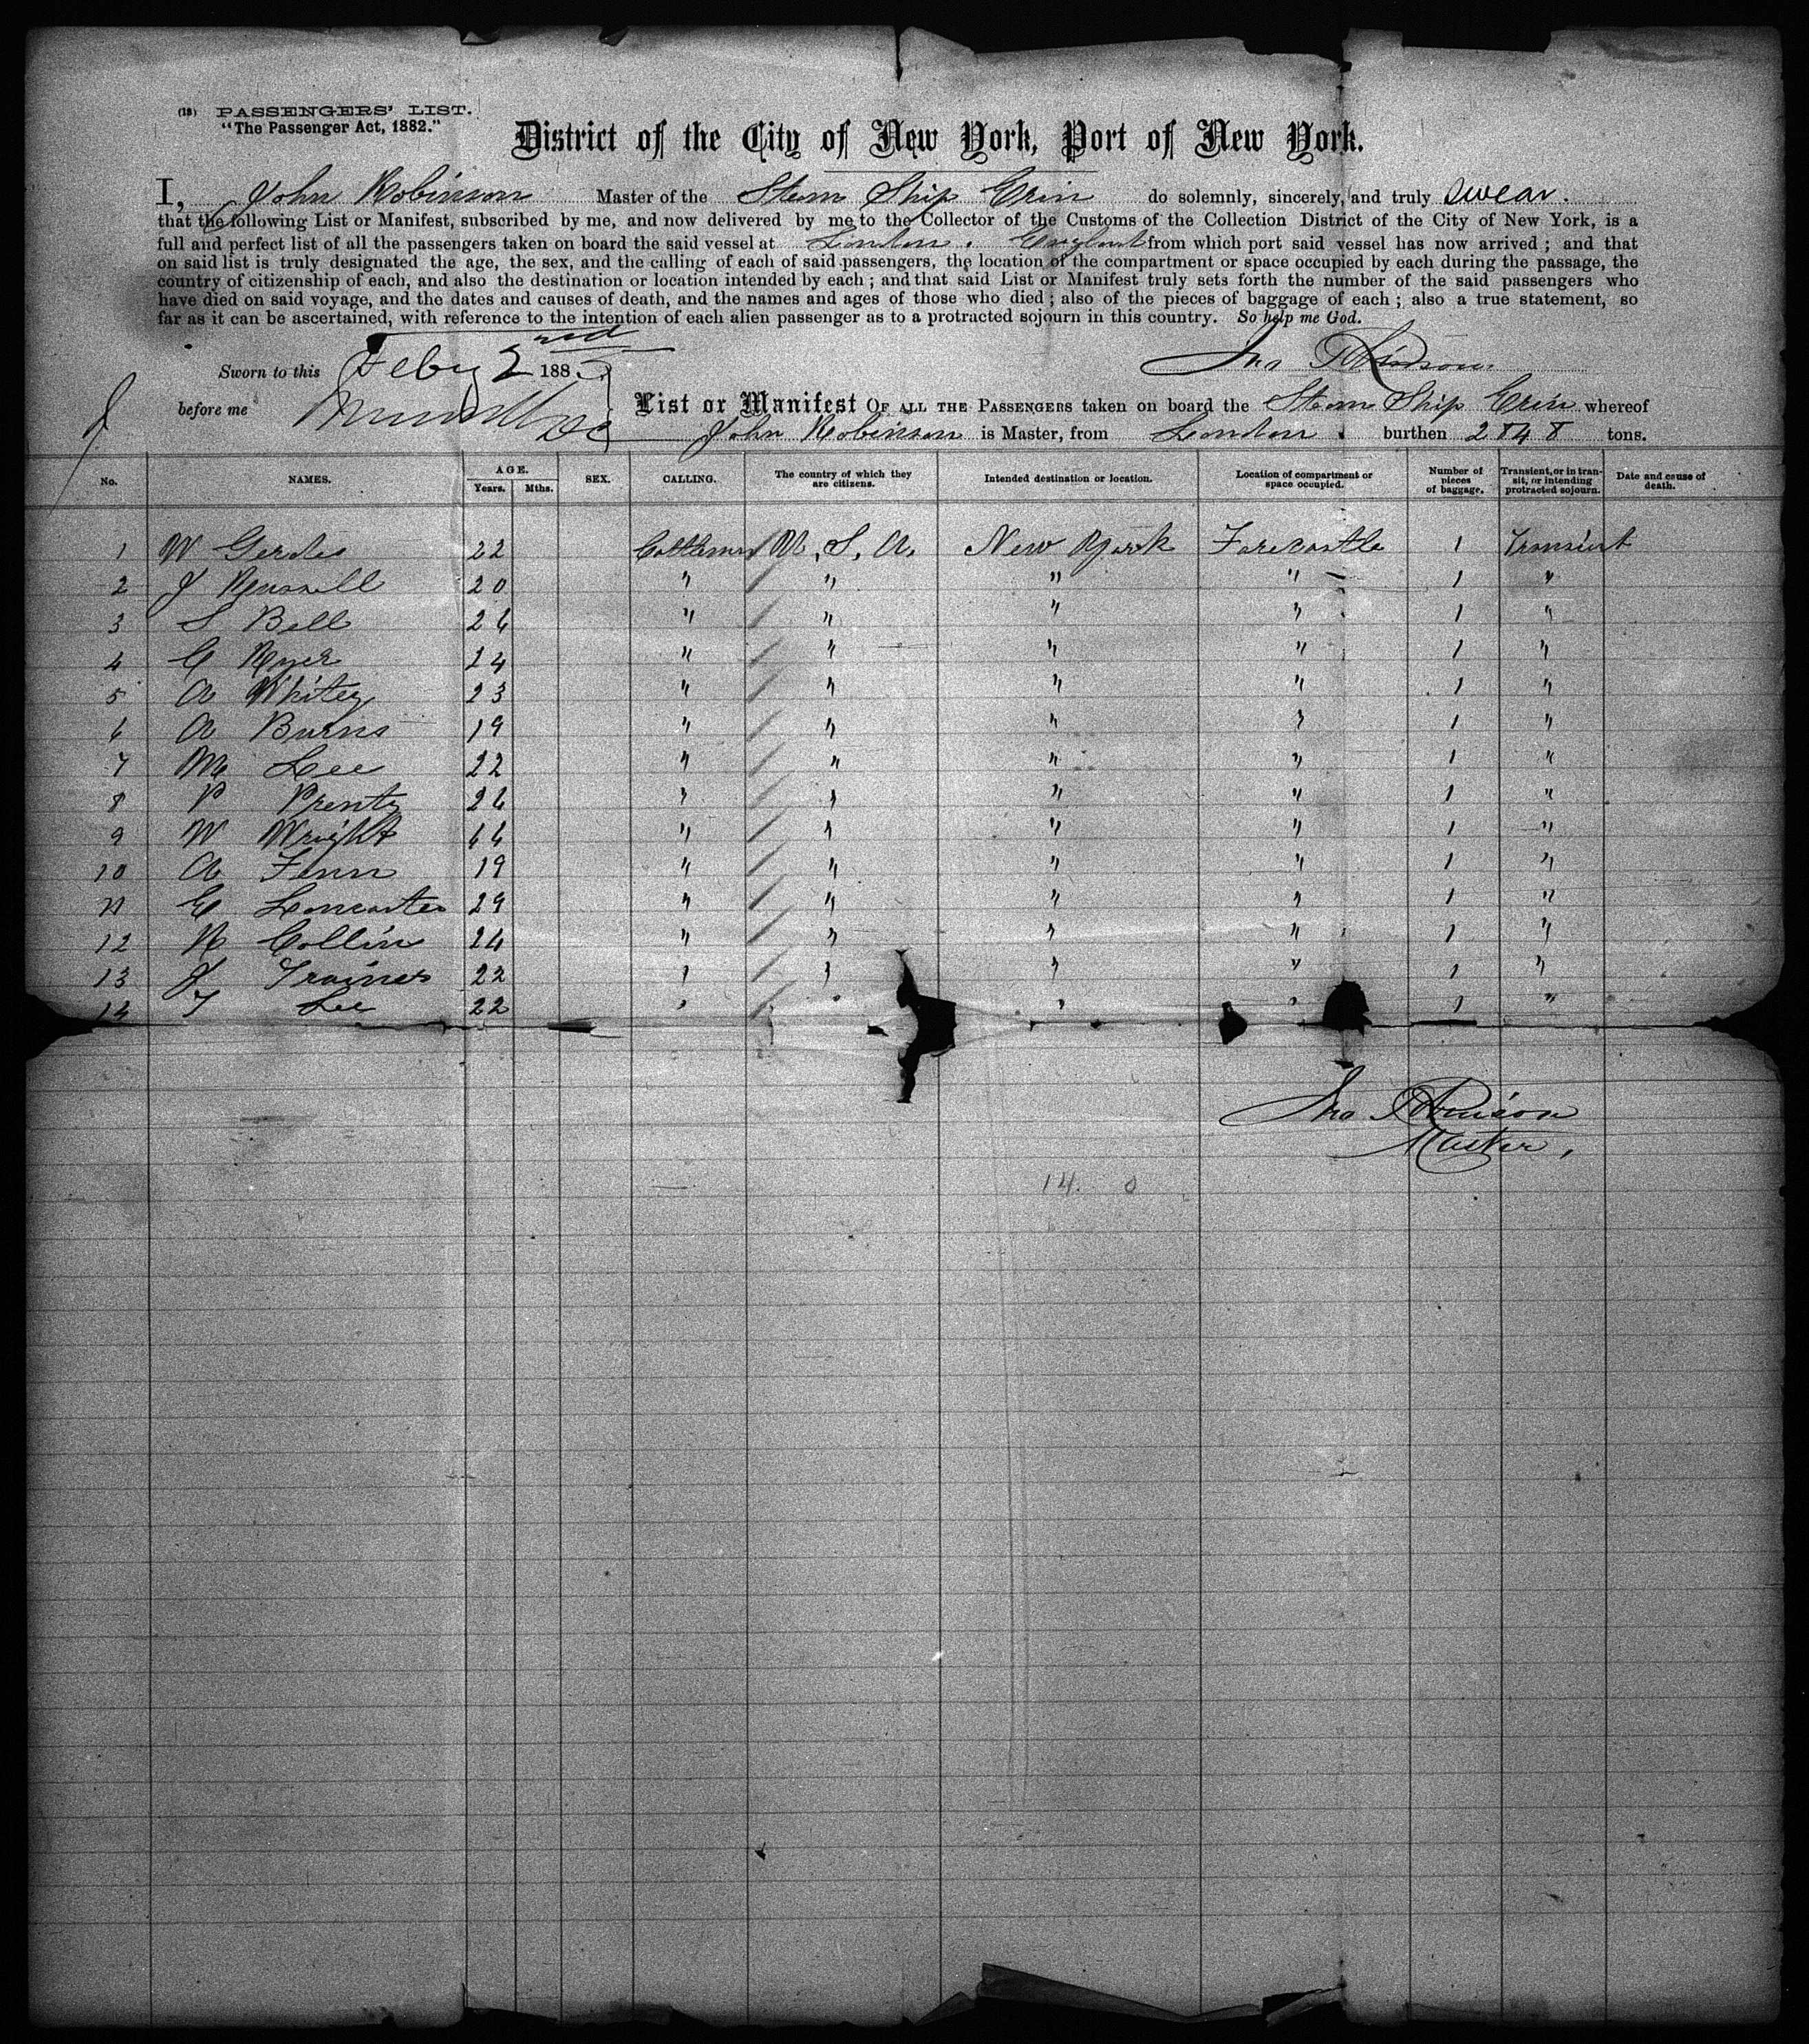 (18) PASSENGERS' LIST.
"The Passenger Act, 1882."
District of the City of New York, Port of New York.
I, John Robinson Master of the Steam Ship Erin do solemnly, sincerely, and truly swear.
that the following List or Manifest, subscribed by me, and now delivered by me to the Collector of the Customs of the Collection District of the City of New York, is a
full and perfect list of all the passengers taken on board the said vessel at London. England from which port said vessel has now arrived ; and that
on said list is truly designated the age, the sex, and the calling of each of said passengers, the location of the compartment or space occupied by each during the passage, the
country of citizenship of each, and also the destination or location intended by each ; and that said List or Manifest truly sets forth the number of the said passengers who
have died on said voyage, and the dates and causes of death, and the names and ages of those who died ; also of the pieces of baggage of each ; also a true statement, so
far as it can be ascertained, with reference to the intention of each alien passenger as to a protracted sojourn in this country. So help me God.
Sworn to this Feby 2nd 188 Jno Robinson
before me
List or Manifest OF ALL THE PASSENGERS taken on board the Steam Ship Erin whereof
John Robinson is Master, from London. burthen 2848 tons.
No. NAMES. AGE. Years. Mths. SEX. CALLING. The country of which they are citizens. Intended destination or location. Location of compartment or space occupied. Number of pieces of baggage. Transient, or in transit, or intending protracted sojourn. Date and cause of death.
1 W Gerdes 22 Cattleman U. S. A. New York Forecastle 1 Transient
2 J Russell 20 " " " " 1 "
3 S Bell 26 " " " " 1 "
4 G Ryer 24 " " " " 1 "
5 A Whitey 23 " " " " 1 "
6 A Burns 19 " " " " 1 "
7 M Lee 22 " " " " 1 "
8 P Prenty 26 " " " " 1 "
9 W Wright 44 " " " " 1 "
10 A Fenn 19 " " " " 1 "
11 E Lancaster 29 " " " " 1 "
12 R Collin 24 " " " " 1 "
13 J Trainer 22 " " " " 1 "
14 T Lee 22 " " " " 1 "
Jno Robinson
Master,
14. 0